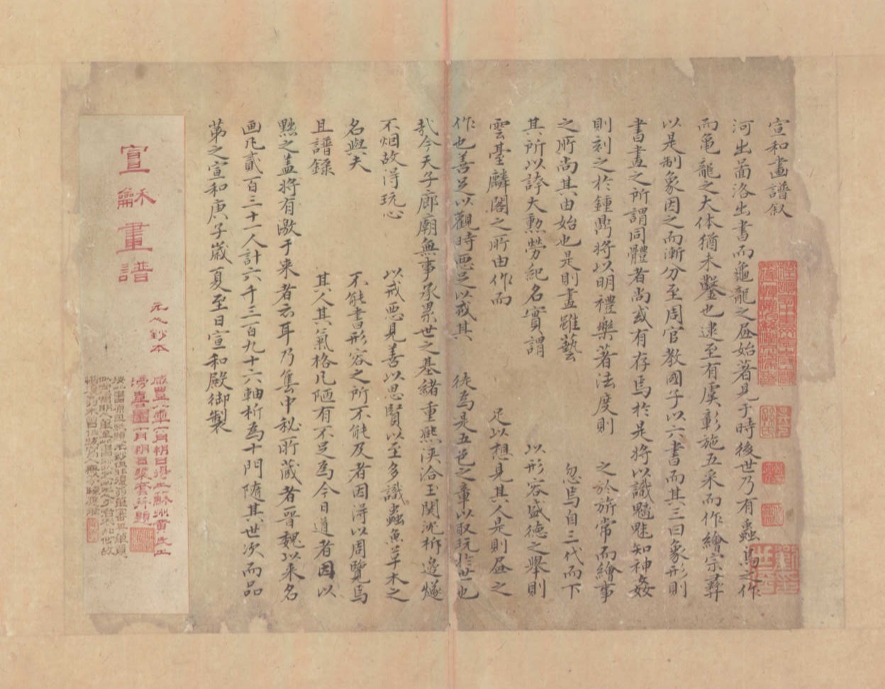 宣和畫譜叙
河出啚洛出書而龜龍之昼始著見于時後世乃有蟲鳥之作
而龟龍之大体猶未鑿也逮至有虞彰施五采而作繪宗彝
以是制象因之而漸分至周官教國子以六書而其三曰象形則
書畫之所謂同體者尚或有存焉於是將以識魑魅知神姦
則刻之於鍾鼎將以明禮樂著法度則 之於旂常而繪事
之所尚其由始也是則畫雖藝 忽焉自三代而下
其所以誇大勲勞紀名實謂 以形容盛德之舉則
雲臺麟閣之所由作而 足以想見其人是則昼之
作也善足以觀時惡足以戒其 徒為是五色之章以取玩於世也
哉今天子廊廟無事承累世之基緒重熙浹洽玉関沈柝邉燧
不烟故得玩心 以戒惡見善以思賢以至多識蟲魚草木之
名與夫 不能書形容之所不能及者因得以周覽焉
且譜錄 其人其氣格凡陋有不足為今日道者因以
黙之盖將有激于来者云耳乃集中秘所藏者晋魏以来名
画凡貳百三十一人計六千三百九十六軸析為十門隨其世次而品
第之宣和庚子嵗夏至日宣和殿御製
宣龢畫譜
元人鈔本